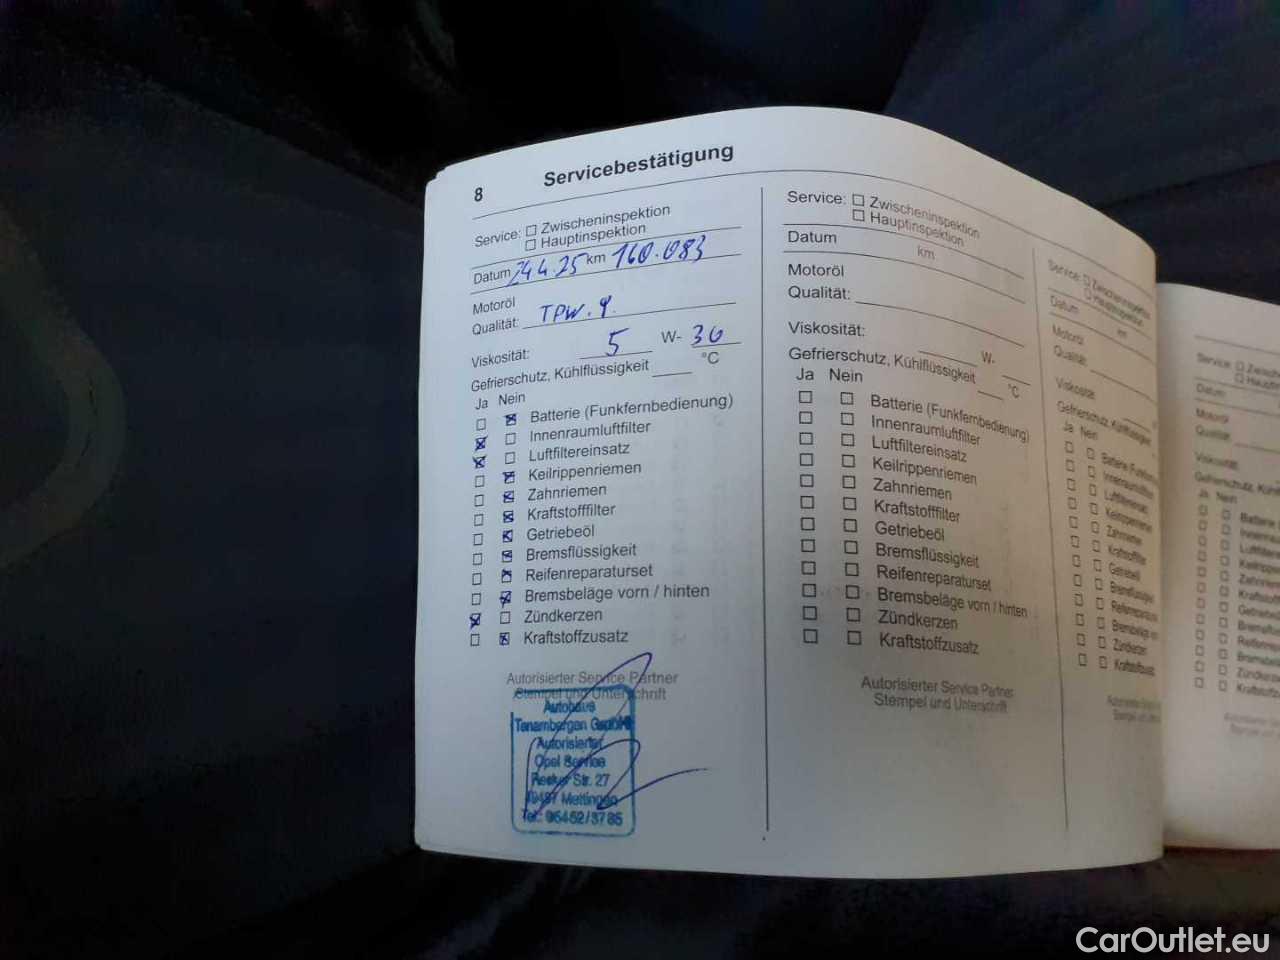 8 Servicebestätigung
Service: ☐ Zwischeninspektion
☐ Hauptinspektion
Datum 24.4.25 km 160.083
Motoröl
Qualität:
Viskosität: 5 W- 30
Gefrierschutz, Kühlflüssigkeit ____ °C
Ja Nein
☐ ☒ Batterie (Funkfernbedienung)
☒ ☐ Innenraumluftfilter
☒ ☐ Luftfiltereinsatz
☐ ☒ Keilrippenriemen
☐ ☒ Zahnriemen
☐ ☒ Kraftstofffilter
☐ ☒ Getriebeöl
☐ ☒ Bremsflüssigkeit
☐ ☒ Reifenreparaturset
☐ ☒ Bremsbeläge vorn / hinten
☒ ☐ Zündkerzen
☐ ☒ Kraftstoffzusatz
Autorisierter Service Partner
Stempel und Unterschrift
Autohaus
Autorisierter
Opel Service
Str. 27
Mettingen
Tel.: 05452/3785
Service: ☐ Zwischeninspektion
☐ Hauptinspektion
Datum km
Motoröl
Qualität:
Viskosität: W-
Gefrierschutz, Kühlflüssigkeit ____ °C
Ja Nein
☐ ☐ Batterie (Funkfernbedienung)
☐ ☐ Innenraumluftfilter
☐ ☐ Luftfiltereinsatz
☐ ☐ Keilrippenriemen
☐ ☐ Zahnriemen
☐ ☐ Kraftstofffilter
☐ ☐ Getriebeöl
☐ ☐ Bremsflüssigkeit
☐ ☐ Reifenreparaturset
☐ ☐ Bremsbeläge vorn / hinten
☐ ☐ Zündkerzen
☐ ☐ Kraftstoffzusatz
Autorisierter Service Partner
Stempel und Unterschrift
Service: ☐ Zwischeninspektion
☐ Hauptinspektion
Datum km
Motoröl
Qualität:
Viskosität:
Gefrierschutz, Kühlflüssigkeit
Ja Nein
☐ ☐ Batterie
☐ ☐ Innenraumluftfilter
☐ ☐ Luftfiltereinsatz
☐ ☐ Keilrippenriemen
☐ ☐ Zahnriemen
☐ ☐ Kraftstofffilter
☐ ☐ Getriebeöl
☐ ☐ Bremsflüssigkeit
☐ ☐
☐ ☐ Bremsbeläge
☐ ☐ Zündkerzen
☐ ☐ Kraftstoffzusatz
Service
Datum
Motoröl
Qualität:
Viskosität:
Ja Nein
CarOutlet.eu